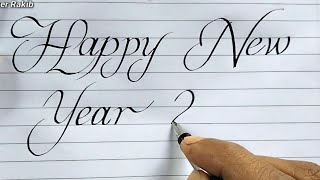 er Rakib
Happy New
Year 2